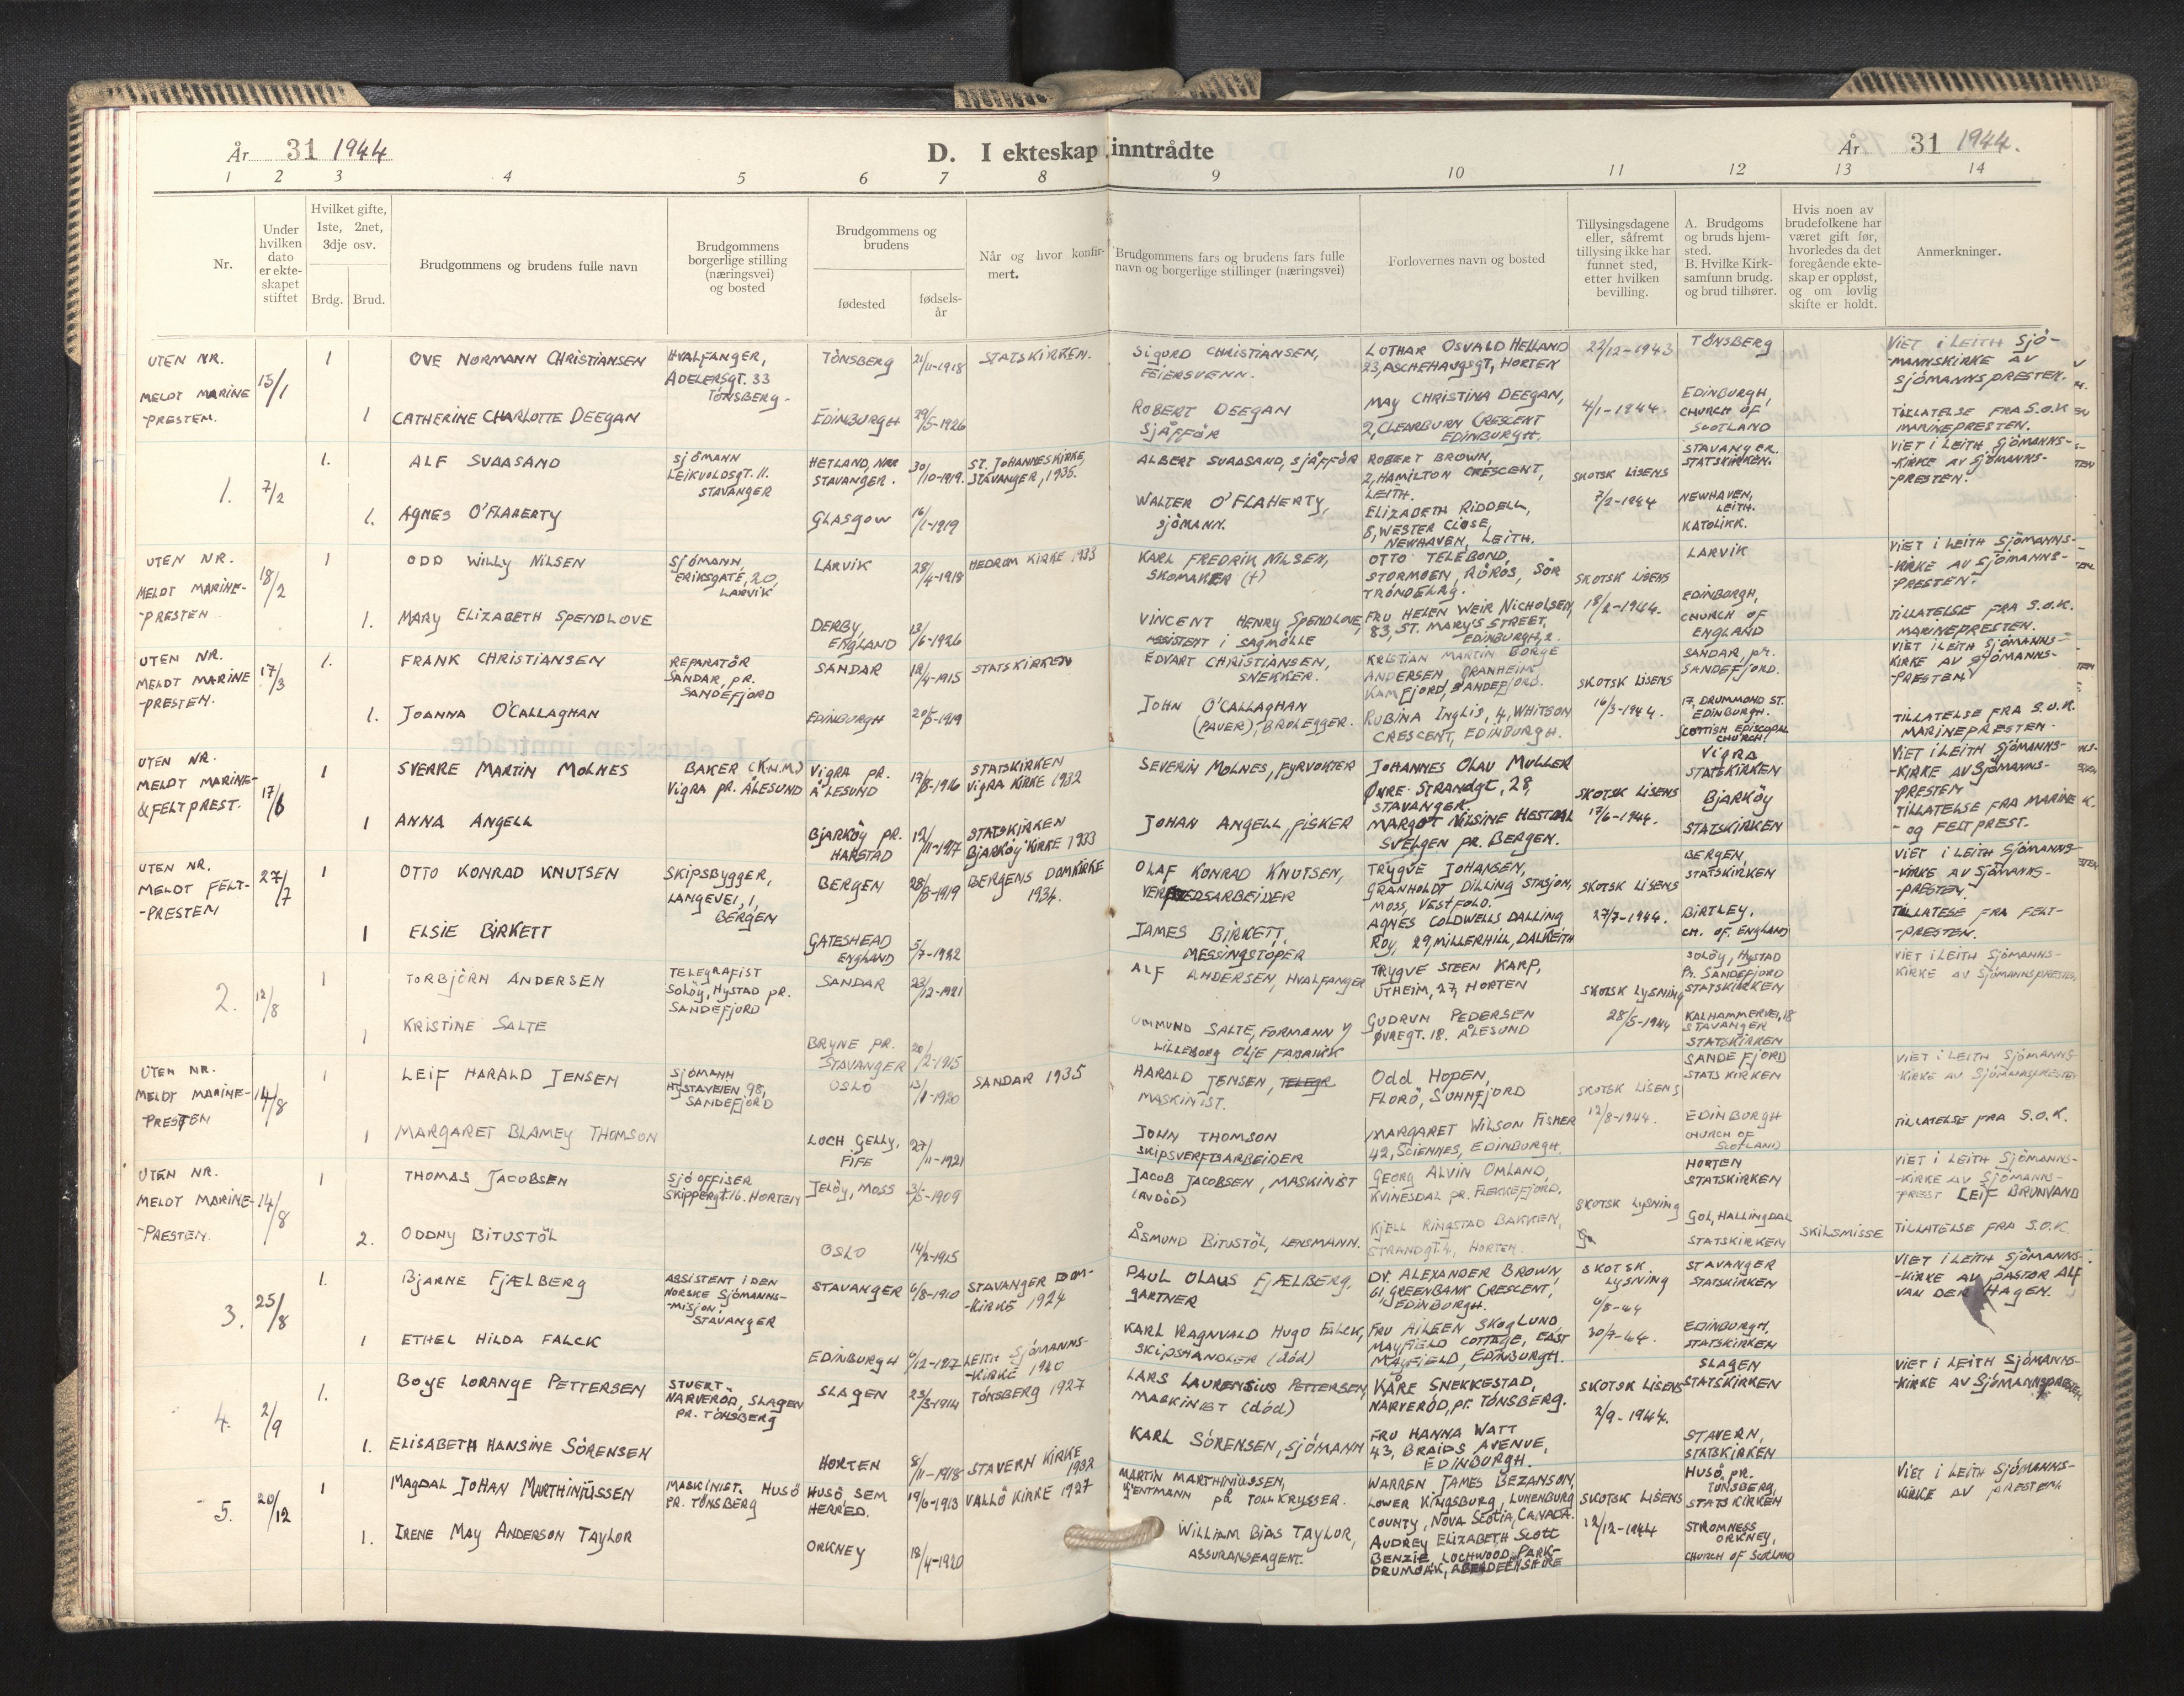 År 31 1944
D. I ekteskap inntrådte
År 31 1944.
1 2 3 4 5 6 7 8 9 10 11 12 13 14
Nr.
Under hvilken dato er ekteskapet stiftet
Hvilket gifte, 1ste, 2net, 3dje osv.
Brdg. Brud.
Brudgommens og brudens fulle navn
Brudgommens borgerlige stilling (næringsvei) og bosted
Brudgommens og brudens
fødested
fødselsår
Når og hvor konfirmert.
Brudgommens fars og brudens fars fulle navn og borgerlige stillinger (næringsvei)
Forlovernes navn og bosted
Tillysingsdagene eller, såfremt tillysing ikke har funnet sted, etter hvilken bevilling.
A. Brudgoms og bruds hjemsted.
B. Hvilke Kirksamfunn brudg. og brud tilhører.
Hvis noen av brudefolkene har været gift før, hvorledes da det foregående ekteskap er oppløst, og om lovlig skifte er holdt.
Anmerkninger.
UTEN NR. MELDT MARINE-PRESTEN. 15/1
1 OVE NORMANN CHRISTIANSEN HVALFANGER, ADELERSGT. 33 TÖNSBERG- TÖNSBERG 21/11-1918 STATSKIRKEN. SIGURD CHRISTIANSEN, FEIERSVENN. LOTHAR OSVALD HELLAND 23, ASCHEHAUGSGT, HORTEN 22/12-1943 TÖNSBERG VIET I LEITH SJÖ-MANNSKIRKE AV SJÖMANNSPRESTEN.
1 CATHERINE CHARLOTTE DEEGAN EDINBURGH 29/5-1926 ROBERT DEEGAN SJÅFFÖR MAY CHRISTINA DEEGAN, 2, CLEARBURN CRESCENT EDINBURGH. 4/1-1944. EDINBURGH, CHURCH OF SCOTLAND TILLATELSE FRA S.O.K MARINEPRESTEN.
1. 7/2
1. ALF SVAASAND SJÖMANN LEIKVOLDSGT. 11. STAVANGER HETLAND, NÆR STAVANGER. 30/10-1919. ST. JOHANNESKIRKE, STAVANGER, 1935. ALBERT SVAASAND, SJÅFFÖR ROBERT BROWN, 2, HAMILTON CRESCENT, LEITH. SKOTSK LISENS STAVANGER. STATSKIRKEN. VIET I LEITH SJÖMANNS-KIRKE AV SJÖMANNS-PRESTEN.
1. AGNES O'FLAHERTY GLASGOW 16/1-1919 WALTER O'FLAHERTY, SJÖMANN. ELIZABETH RIDDELL, 8, WESTER CLOSE, NEWHAVEN, LEITH. 7/2-1944 NEWHAVEN, LEITH. KATOLIKK.
UTEN NR. MELDT MARINE-PRESTEN 18/2
1 ODD WILLY NILSEN SJÖMANN, ERIKSGATE, 20, LARVIK LARVIK 28/4-1918 HEDRUM KIRKE 1933 KARL FREDRIK NILSEN, SKOMAKER (†) OTTO TELEBOND, STORMOEN, RÖRÖS, SÖR TRÖNDELAG. SKOTSK LISENS LARVIK VIET I LEITH SJÖMANNS-KIRKE AV SJÖMANNS-PRESTEN.
1. MARY ELIZABETH SPENDLOVE DERBY, ENGLAND 13/6-1926 VINCENT HENRY SPENDLOVE, ASSISTENT I SAGMÖLLE FRU HELEN WEIR NICHOLSEN, 83, ST. MARY'S STREET, EDINBURGH, 2. 18/2-1944. EDINBURGH, CHURCH OF ENGLAND TILLATELSE FRA S.O.K. MARINEPRESTEN.
UTEN NR. MELDT MARINE-PRESTEN. 17/3
1. FRANK CHRISTIANSEN REPARATÖR SANDAR, PR. SANDEFJORD SANDAR 12/4-1915 STATSKIRKEN EDVART CHRISTIANSEN, SNEKKER. KRISTIAN MARTIN BORGE ANDERSEN GRANHEIM KAMFJORD, SANDEFJORD. SKOTSK LISENS SANDAR, PR. SANDEFJORD. VIET I LEITH SJÖMANNS-KIRKE AV SJÖMANNS-PRESTEN
1. JOANNA O'CALLAGHAN EDINBURGH 20/5-1919 JOHN O'CALLAGHAN (PAVER), BROLEGGER. RUBINA INGLIS, 4, WHITSON CRESCENT, EDINBURGH. 16/3-1944. 17, DRUMMOND ST. EDINBURGH. SCOTTISH EPISCOPAL CHURCH. TILLATELSE FRA S.O.K. MARINEPRESTEN.
UTEN NR. MELDT MARINE- & FELTPREST. 17/6
1 SVERRE MARTIN MOLNES BAKER (K.N.M.) VIGRA PR. ÅLESUND VIGRA PR. ÅLESUND 17/8-1916 STATSKIRKEN VIGRA KIRKE 1932 SEVERIN MOLNES, FYRVOKTER JOHANNES OLAV MULLER ÖVRE STRANDGT, 28, STAVANGER SKOTSK LISENS VIGRA STATSKIRKEN VIET I LEITH SJÖMANNS-KIRKE AV SJÖMANNS-PRESTEN
1 ANNA ANGELL BJARKÖY PR. HARSTAD 12/11-1917 STATSKIRKEN BJARKÖY KIRKE 1933 JOHAN ANGELL, FISKER MARGOT NILSINE HESTDAL SVELGEN PR. BERGEN. 17/6-1944. BJARKÖY STATSKIRKEN TILLATELSE FRA MARINE- OG FELTPREST.
UTEN NR. MELDT FELT-PRESTEN 27/7
1 OTTO KONRAD KNUTSEN SKIPSBYGGER, LANGEVEI, 1, BERGEN BERGEN 28/8-1919 BERGENS DOMKIRKE 1934. OLAF KONRAD KNUTSEN, VERFTEDSARBEIDER TRYGVE JOHANSEN, GRANHOLDT DILLING STASJON, MOSS, VESTFOLD. SKOTSK LISENS BERGEN, STATSKIRKEN VIET I LEITH SJÖMANNS-KIRKE AV SJÖMANNS-PRESTEN
1 ELSIE BIRKETT GATESHEAD ENGLAND 5/7-1922 JAMES BIRKETT. MESSINGSTÖPER AGNES COLDWELLS DALLING ROY, 29, MILLERHILL, DALKEITH 27/7-1944. BIRTLEY. CH. OF. ENGLAND TILLATELSE FRA FELT-PRESTEN.
2. 12/8
1 TORBJÖRN ANDERSEN TELEGRAFIST SOLÖY, HYSTAD PR. SANDEFJORD SANDAR 23/12-1921 ALF ANDERSEN, HVALFANGER TRYGVE STEEN KARP, UTHEIM, 27, HORTEN SKOTSK LYSNING SOLÖY, HYSTAD PR. SANDEFJORD STATSKIRKEN VIET I LEITH SJÖMANNS-KIRKE AV SJÖMANNSPRESTEN
1 KRISTINE SALTE BRYNE PR. STAVANGER 20/2-1915 OMMUND SALTE, FORMANN LILLEBORG OLJE FABRIKK GUDRUN PEDERSEN ÖVREGT. 18. ÅLESUND 28/5-1944 KALHAMMERVEI, 18 STAVANGER STATSKIRKEN
UTEN NR. MELDT MARINE-PRESTEN 14/8
1 LEIF HARALD JENSEN SJÖMANN HYSTAVEIEN 98, SANDEFJORD OSLO 13/1-1920 SANDAR 1935 HARALD JENSEN, TELEGR MASKINIST. ODD HOPEN, FLORÖ, SUNNFJORD SKOTSK LISENS SANDEFJORD STATSKIRKEN VIET I LEITH SJÖMANNS-KIRKE AV SJÖMANNSPRESTEN
1 MARGARET BLAMEY THOMSON LOCH GELLY, FIFE 27/11-1921 JOHN THOMSON SKIPSVERFTSARBEIDER MARGARET WILSON FISHER 42, SCIENNES, EDINBURGH 12/8-1944. EDINBURGH CHURCH OF SCOTLAND TILLATELSE FRA S.O.K.
UTEN NR. MELDT MARINE-PRESTEN. 14/8
1 THOMAS JACOBSEN SJÖOFFISER SKIPPERGT. 16. HORTEN JELÖY, MOSS 3/5-1909 JACOB JACOBSEN, MASKINIST (AVDÖD) GEORG ALVIN OMLAND, KVINESDAL PR. FLEKKEFJORD. SKOTSK LYSNING HORTEN STATSKIRKEN VIET I LEITH SJÖMANNS-KIRKE AV SJÖMANNS-PREST LEIF BRUNVAND
2. ODDNY BITUSTÖL OSLO 14/2-1915 ÅSMUND BITUSTÖL, LENSMANN. KJELL RINGSTAD BAKKEN, STRANDGT. 4, HORTEN. GOL, HALLINGDAL STATSKIRKEN SKILSMISSE TILLATELSE FRA S.O.K.
3. 25/8
1. BJARNE FJÆLBERG ASSISTENT I DEN NORSKE SJÖMANNS-MISJON, STAVANGER STAVANGER 6/8-1910 STAVANGER DOM-KIRKE 1924 PAUL OLAUS FJÆLBERG, GARTNER DR. ALEXANDER BROWN, 61 GREENBANK CRESCENT, EDINBURGH. SKOTSK LYSNING 6/8-44 STAVANGER STATSKIRKEN VIET I LEITH SJÖMANNS-KIRKE AV PASTOR ALF VAN DER HAGEN.
1 ETHEL HILDA FALCK EDINBURGH 6/12-1927 LEITH SJÖMANNS-KIRKE 1940 KARL RAGNVALD HUGO FALCK, SKIPSHANDLER (DÖD) FRU AILEEN SKOGLUND, MAYFIELD COTTAGE, EAST MAYFIELD, EDINBURGH. 30/7-44. EDINBURGH, STATSKIRKEN
4. 2/9
1. BOYE LORANGE PETTERSEN STUERT. NARVERÖD, SLAGEN PR. TÖNSBERG SLAGEN 23/3-1914 TÖNSBERG 1927 LARS LAURENSIUS PETTERSEN, MASKINIST (DÖD) KÅRE SNEKKESTAD, NARVERÖD, PR. TÖNSBERG. SKOTSK LISENS SLAGEN STATSKIRKEN VIET I LEITH SJÖMANNS-KIRKE AV SJÖMANNSPRESTEN
1. ELISABETH HANSINE SÖRENSEN HORTEN 8/11-1918 STAVERN KIRKE 1932 KARL SÖRENSEN, SJÖMANN FRU HANNA WATT 43, BRAIDS AVENUE, EDINBURGH. 2/9-1944. STAVERN, STATSKIRKEN
5. 20/12
1 MAGDAL JOHAN MARTHINIUSSEN MASKINIST. HUSÖ PR. TÖNSBERG HUSÖ, SEM HERRED. 19/6-1913 VALLÖ KIRKE 1927 MARTIN MARTHINIUSSEN, KJENTMANN PÅ TOLLKRYSSER. WARREN JAMES BEZANSON, LOWER KINGSBURG, LUNENBURG COUNTY, NOVA SCOTIA, CANADA. SKOTSK LISENS HUSÖ, PR. TÖNSBERG, STATSKIRKEN VIET I LEITH SJÖMANNS-KIRKE AV PRESTEN.
1. IRENE MAY ANDERSON TAYLOR ORKNEY 18/4-1920 WILLIAM BIAS TAYLOR, ASSURANSEAGENT. AUDREY ELIZABETH SCOTT BENZIE, LOCHWOOD, PARK-DRUMOAK, ABERDEENSHIRE 12/12-1944 STROMNESS ORKNEY, CHURCH OF SCOTLAND